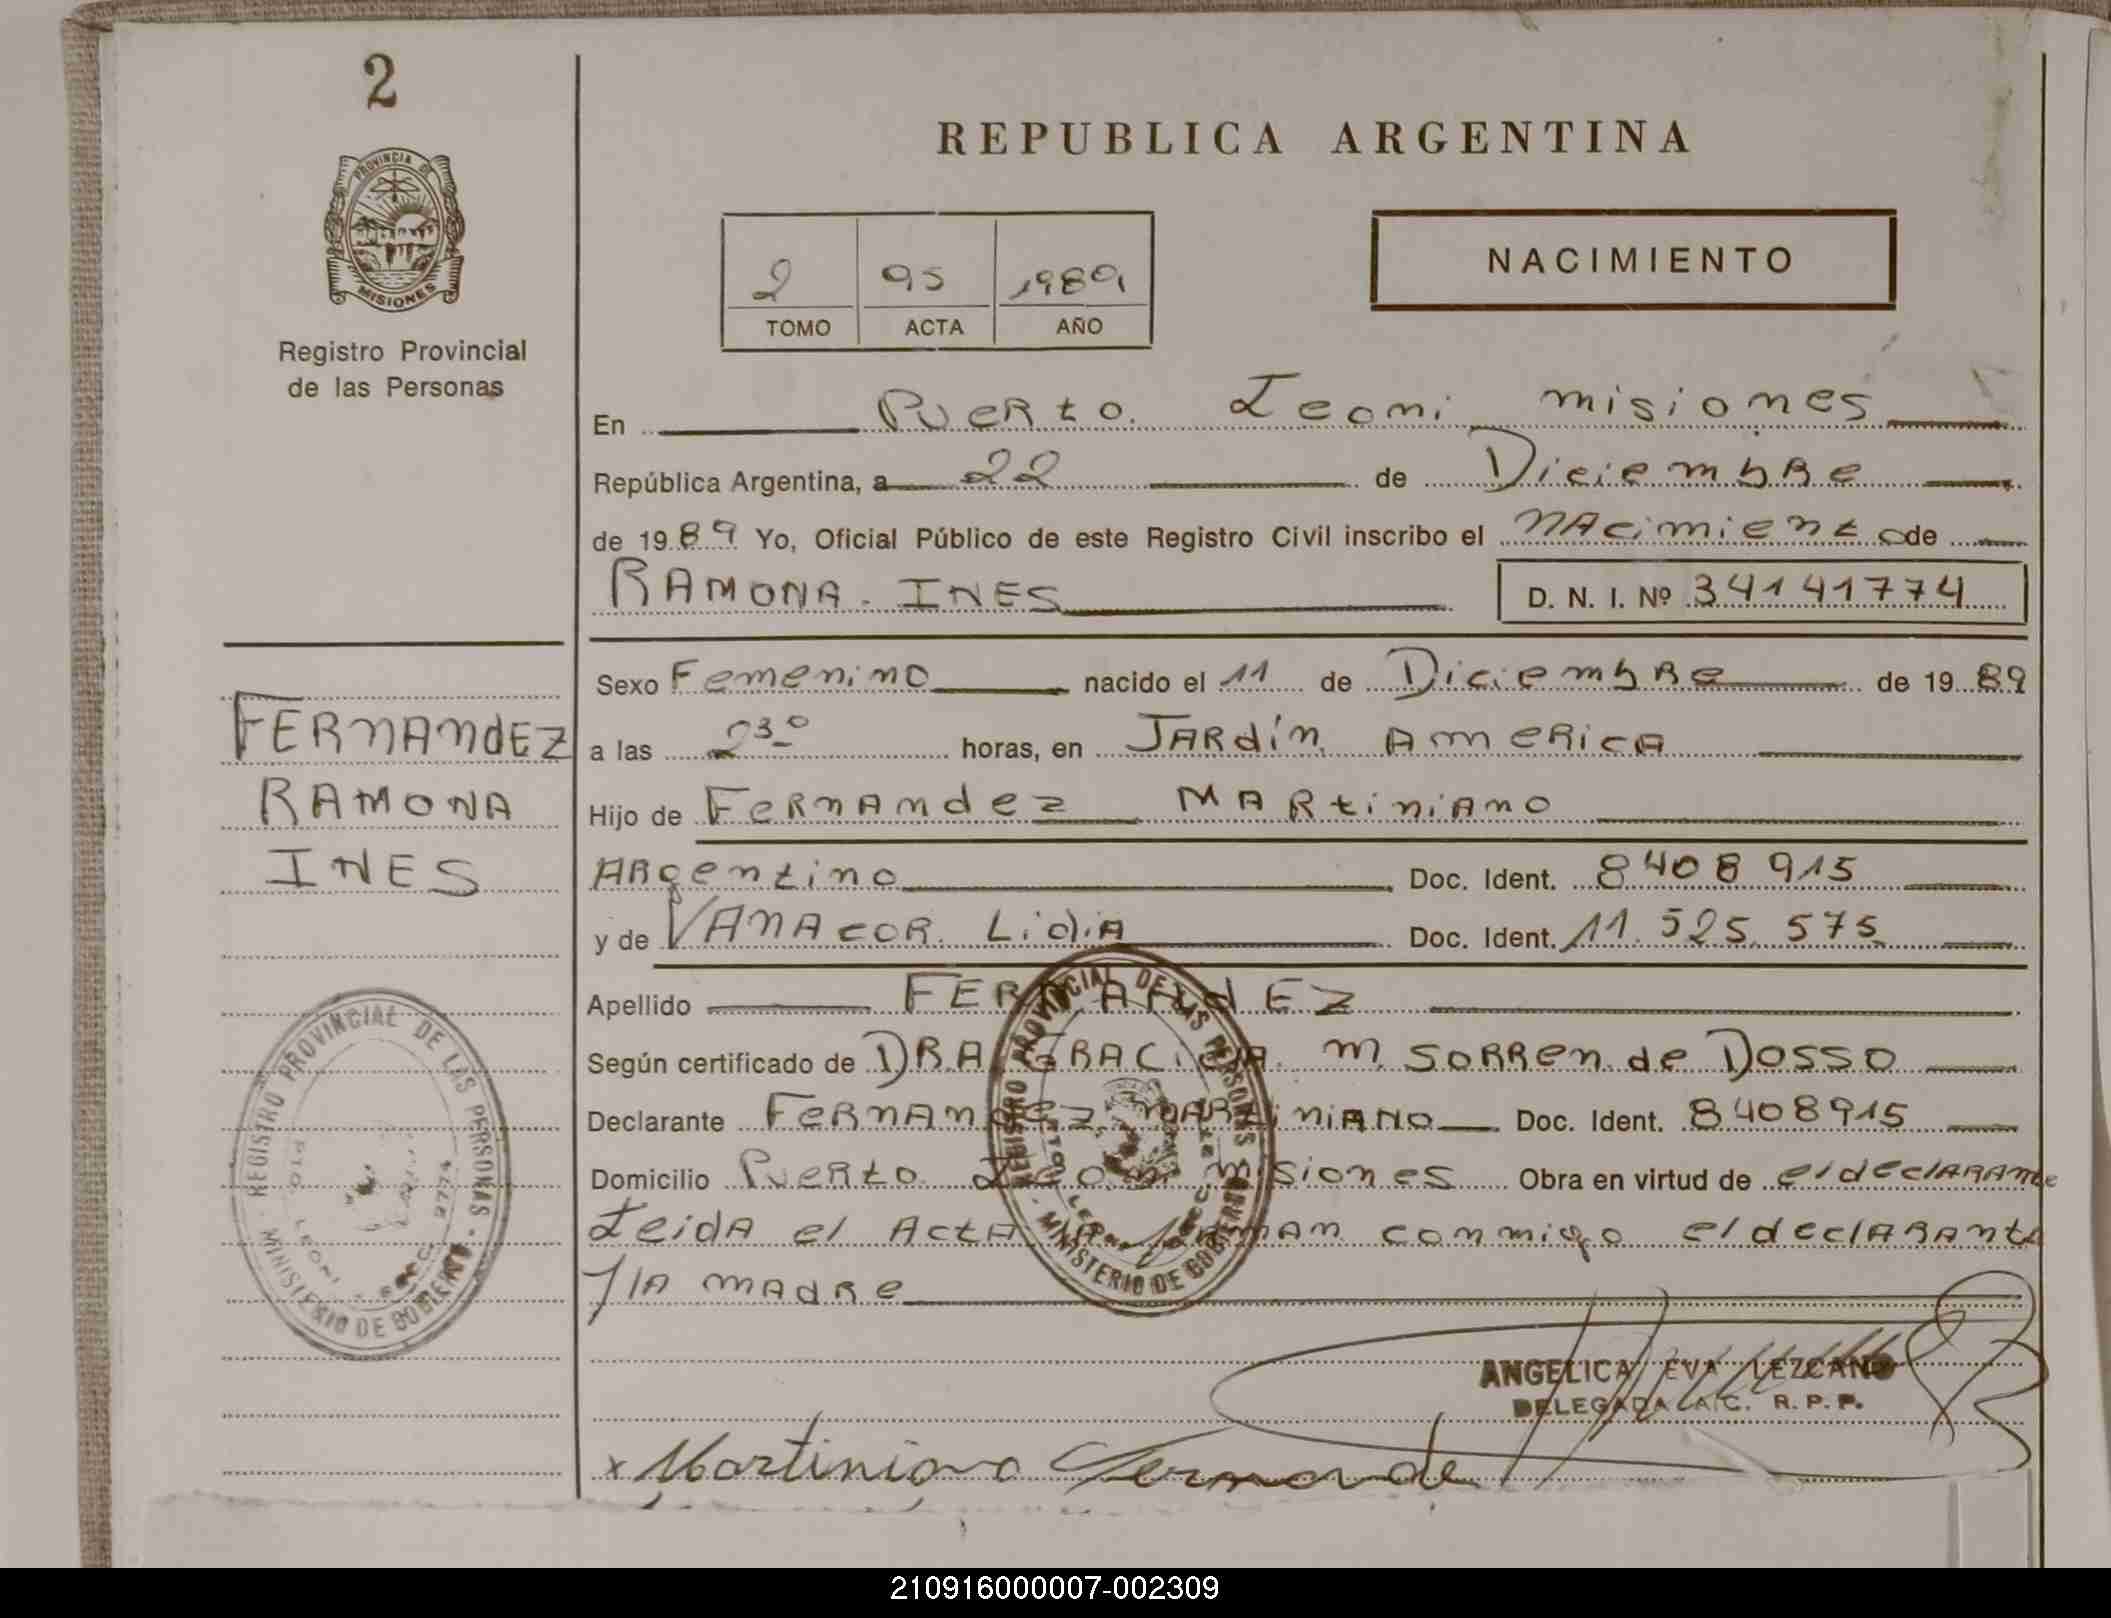 2
PROVINCIA DE
MISIONES
Registro Provincial
de las Personas
REPUBLICA ARGENTINA
2 95 1989
TOMO ACTA AÑO
NACIMIENTO
En Puerto Leoni misiones
República Argentina, a 22 de Diciembre
de 1989 Yo, Oficial Público de este Registro Civil inscribo el nacimiento de
RAMONA INES D. N. I. Nº 34141774
Sexo Femenino nacido el 11 de Diciembre de 1989
a las 23º horas, en Jardín America
Hijo de Fernandez Martiniano
Argentino Doc. Ident. 8408915
y de Vanacor Lidia Doc. Ident. 11.525.575
Apellido FERNANDEZ
Según certificado de DRA GRACIELA M SORREN de DOSSO
Declarante Fernandez Martiniano Doc. Ident. 8408915
Domicilio Puerto Leoni misiones Obra en virtud de el declarante
Leida el Acta la firman conmigo el declarante
y la madre
ANGELICA EVA LEZCANO
DELEGADA A/C. R. P. P.
x Martiniano Fernande
FERNANDEZ
RAMONA
INES
REGISTRO PROVINCIAL DE LAS PERSONAS
MINISTERIO DE GOBIERNO
PTO. LEONI SECC. 2774
REGISTRO PROVINCIAL DE LAS PERSONAS
MINISTERIO DE GOBIERNO
210916000007-002309